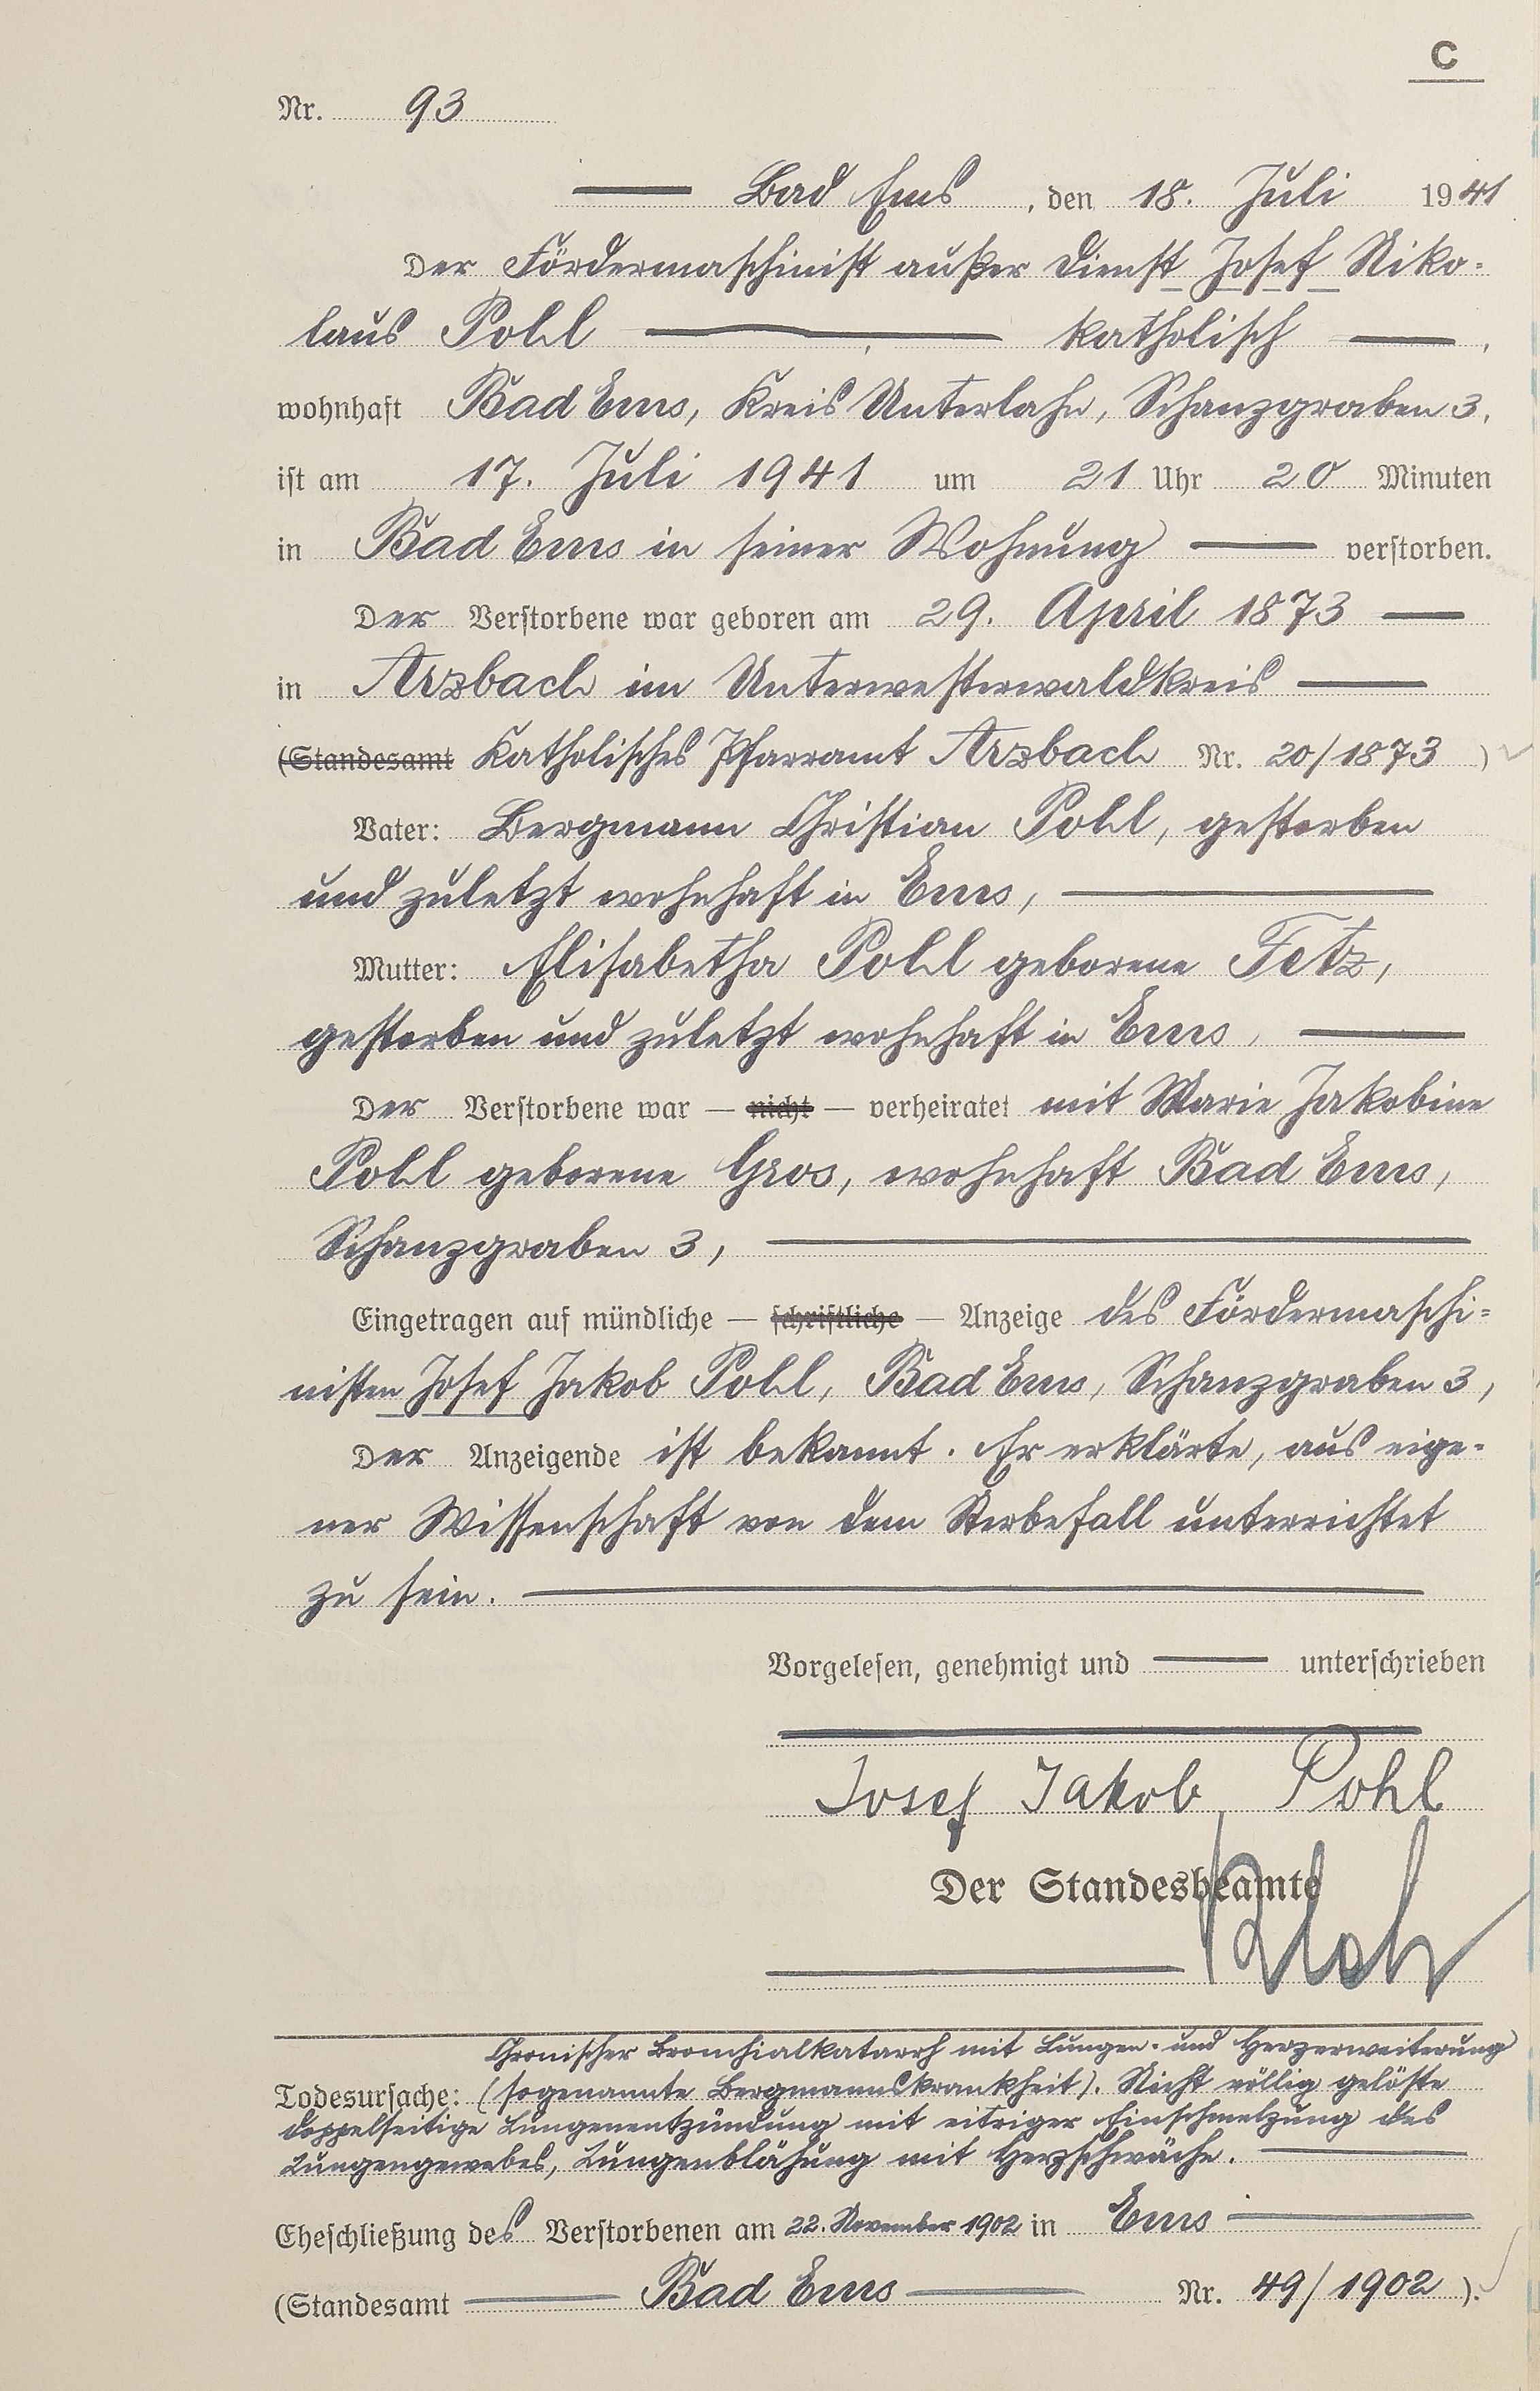 C
Nr. 93
Bad Ems, den 18. Juli 1941
Der Fördermaschinist außer Dienst Josef Niko-
laus Pohl katholisch,
wohnhaft Bad Ems, Kreis Unterlahn, Schanzgraben 3,
ist am 17. Juli 1941 um 21 Uhr 20 Minuten
in Bad Ems in seiner Wohnung verstorben.
Der Verstorbene war geboren am 29. April 1873
in Arzbach im Unterwesterwaldkreis
(Standesamt Katholisches Pfarramt Arzbach Nr. 20/1873)
Vater: Bergmann Christian Pohl, gestorben
und zuletzt wohnhaft in Ems,
Mutter: Elisabetha Pohl geborene Fetz,
gestorben und zuletzt wohnhaft in Ems,
Der Verstorbene war — nicht — verheiratet mit Marie Jakobine
Pohl geborene Gros, wohnhaft Bad Ems,
Schanzgraben 3,
Eingetragen auf mündliche — schriftliche — Anzeige des Fördermaschi=
nisten Josef Jakob Pohl, Bad Ems, Schanzgraben 3,
Der Anzeigende ist bekannt. Er erklärte, aus eige-
ner Wissenschaft von dem Sterbefall unterrichtet
zu sein.
Vorgelesen, genehmigt und unterschrieben
Josef Jakob Pohl
Der Standesbeamte
Chronischer Bronchialkatarrh mit Lungen- und Herzerweiterung
Todesursache: (sogenannte Bergmannskrankheit). Nicht völlig gelöste
doppelseitige Lungenentzündung mit eitriger Einschmelzung des
Lungengewebes, Lungenblähung mit Herzschwäche.
Eheschließung des Verstorbenen am 22. November 1902 in Ems
(Standesamt Bad Ems Nr. 49/1902).